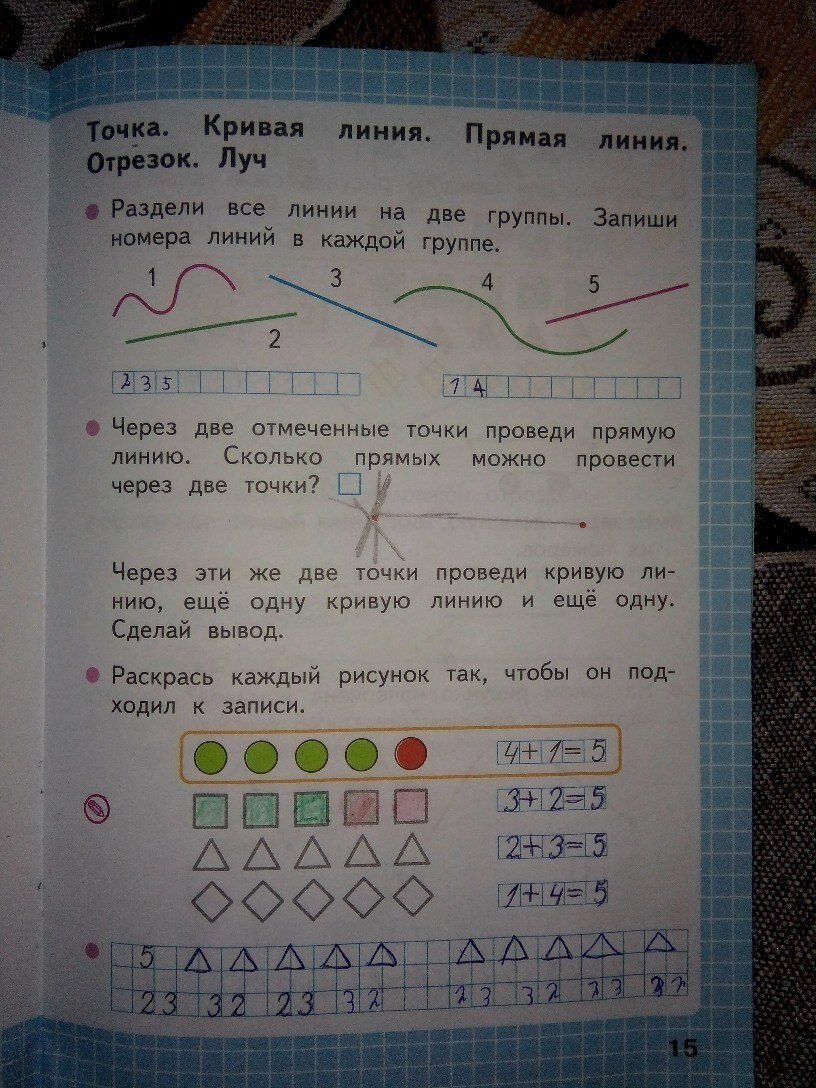 Точка. Кривая линия. Прямая линия.
Отрезок. Луч
Раздели все линии на две группы. Запиши
номера линий в каждой группе.
1 3 4 5
2
2 3 5 1 4
Через две отмеченные точки проведи прямую
линию. Сколько прямых можно провести
через две точки?
Через эти же две точки проведи кривую ли-
нию, ещё одну кривую линию и ещё одну.
Сделай вывод.
Раскрась каждый рисунок так, чтобы он под-
ходил к записи.
4+1=5
3+2=5
2+3=5
1+4=5
5
23 32 23 32 23 32 23
15